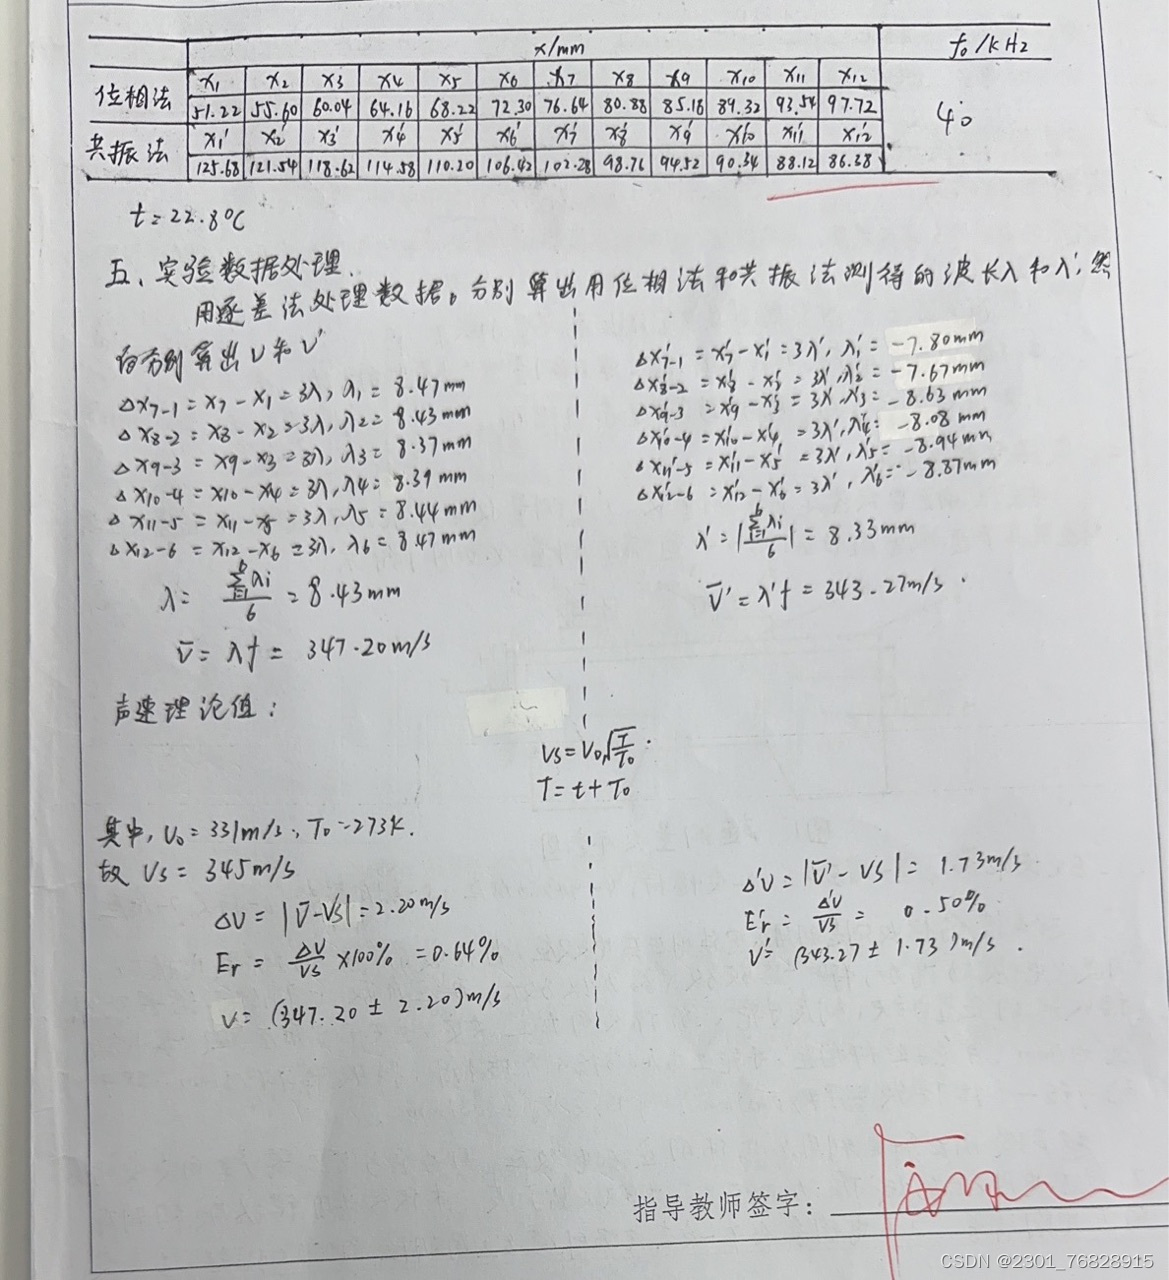 x/mm f₀/kHz
位相法 x₁ x₂ x₃ x₄ x₅ x₆ x₇ x₈ x₉ x₁₀ x₁₁ x₁₂
51.22 55.60 60.04 64.16 68.22 72.30 76.64 80.88 85.16 89.32 93.54 97.72
40
共振法 x₁' x₂' x₃' x₄' x₅' x₆' x₇' x₈' x₉' x₁₀' x₁₁' x₁₂'
125.68 121.54 118.62 114.58 110.20 106.42 102.28 98.76 94.52 90.34 88.12 86.38
t=22.8℃
五、实验数据处理.
用逐差法处理数据。分别算出用位相法和共振法测得的波长λ和λ',然
后分别算出V和V'
Δx₇₋₁ = x₇ - x₁ = 3λ, λ₁ = 8.47mm
Δx₈₋₂ = x₈ - x₂ = 3λ, λ₂ = 8.43mm
Δx₉₋₃ = x₉ - x₃ = 3λ, λ₃ = 8.37mm
Δx₁₀₋₄ = x₁₀ - x₄ = 3λ, λ₄ = 8.39mm
Δx₁₁₋₅ = x₁₁ - x₅ = 3λ, λ₅ = 8.44mm
Δx₁₂₋₆ = x₁₂ - x₆ = 3λ, λ₆ = 8.47mm
λ = Σᵢ₌₁⁶λi/6 = 8.43mm
V̄ = λf = 347.20m/s
Δx'₇₋₁ = x₇' - x₁' = 3λ', λ₁' = -7.80mm
Δx'₈₋₂ = x₈' - x₂' = 3λ', λ₂' = -7.67mm
Δx'₉₋₃ = x₉' - x₃' = 3λ', λ₃' = -8.63mm
Δx'₁₀₋₄ = x₁₀' - x₄' = 3λ', λ₄' = -8.08mm
Δx'₁₁₋₅ = x₁₁' - x₅' = 3λ', λ₅' = -8.94mm
Δx'₁₂₋₆ = x₁₂' - x₆' = 3λ', λ₆' = -8.87mm
λ' = |Σᵢ₌₁⁶λi/6| = 8.33mm
V̄' = λ'f = 343.27m/s.
声速理论值:
Vs = V₀√(T/T₀).
T = t + T₀
其中, V₀ = 331m/s, T₀ = 273K.
故 Vs = 345m/s
ΔV = |V̄ - Vs| = 2.20m/s
Er = ΔV/Vs ×100% = 0.64%
V = (347.20 ± 2.20)m/s
Δ'V = |V̄' - Vs| = 1.73m/s
Er' = Δ'V/Vs = 0.50%
V' = (343.27 ± 1.73)m/s.
指导教师签字:
CSDN @2301_76828915